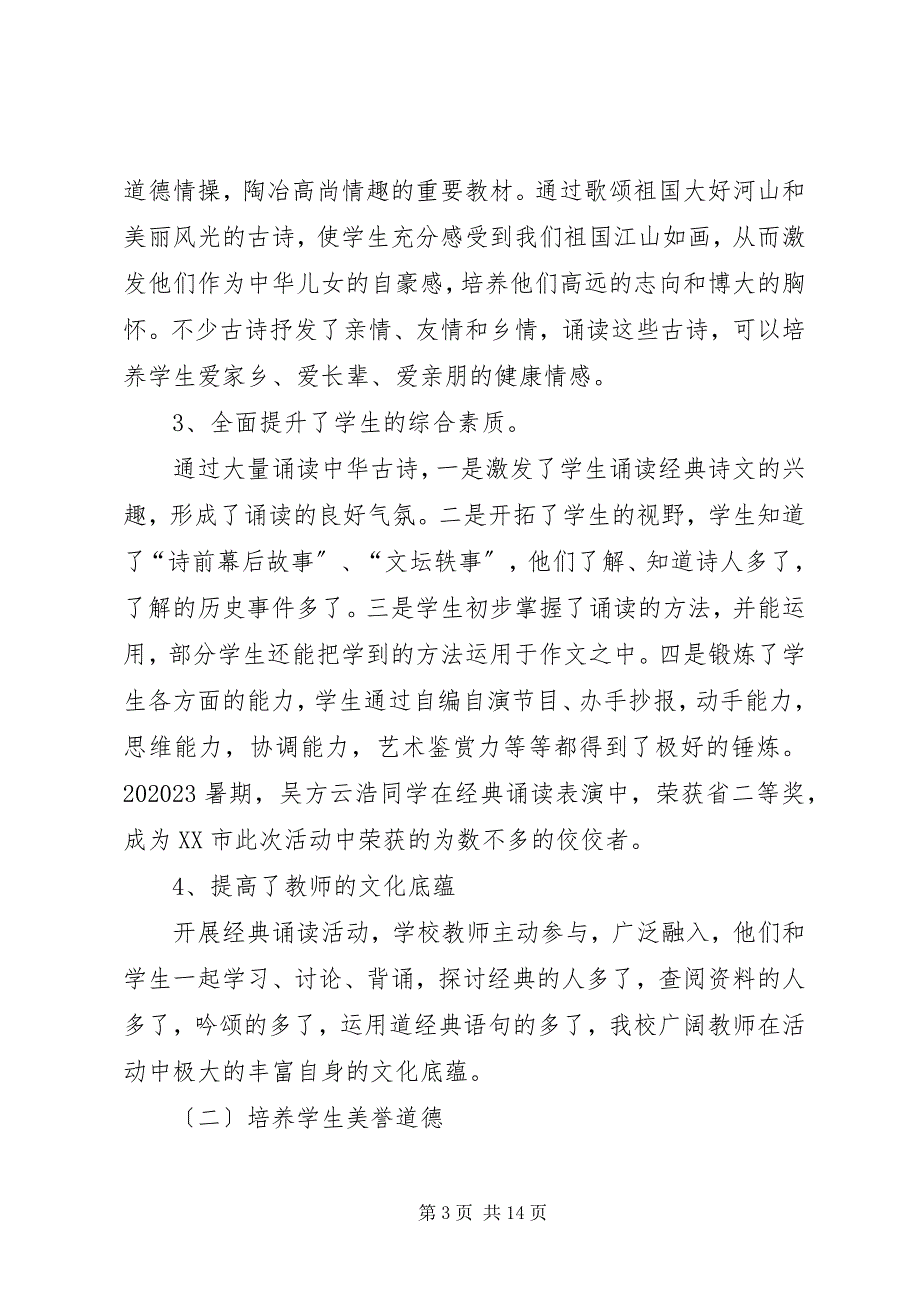 道德情操，陶冶高尚情趣的重要教材。通过歌颂祖国大好河山和
美丽风光的古诗，使学生充分感受到我们祖国江山如画，从而激
发他们作为中华儿女的自豪感，培养他们高远的志向和博大的胸
怀。不少古诗抒发了亲情、友情和乡情，诵读这些古诗，可以培
养学生爱家乡、爱长辈、爱亲朋的健康情感。
3、全面提升了学生的综合素质。
通过大量诵读中华古诗，一是激发了学生诵读经典诗文的兴
趣，形成了诵读的良好气氛。二是开拓了学生的视野，学生知道
了“诗前幕后故事〞、“文坛轶事〞，他们了解、知道诗人多了，
了解的历史事件多了。三是学生初步掌握了诵读的方法，并能运
用，部分学生还能把学到的方法运用于作文之中。四是锻炼了学
生各方面的能力，学生通过自编自演节目、办手抄报，动手能力，
思维能力，协调能力，艺术鉴赏力等等都得到了极好的锤炼。
202023 暑期，吴方云浩同学在经典诵读表演中，荣获省二等奖，
成为 XX 市此次活动中荣获的为数不多的佼佼者。
4、提高了教师的文化底蕴
开展经典诵读活动，学校教师主动参与，广泛融入，他们和
学生一起学习、讨论、背诵，探讨经典的人多了，查阅资料的人
多了，吟颂的多了，运用道经典语句的多了，我校广阔教师在活
动中极大的丰富自身的文化底蕴。
〔二〕培养学生美誉道德
第 3 页 共 14 页